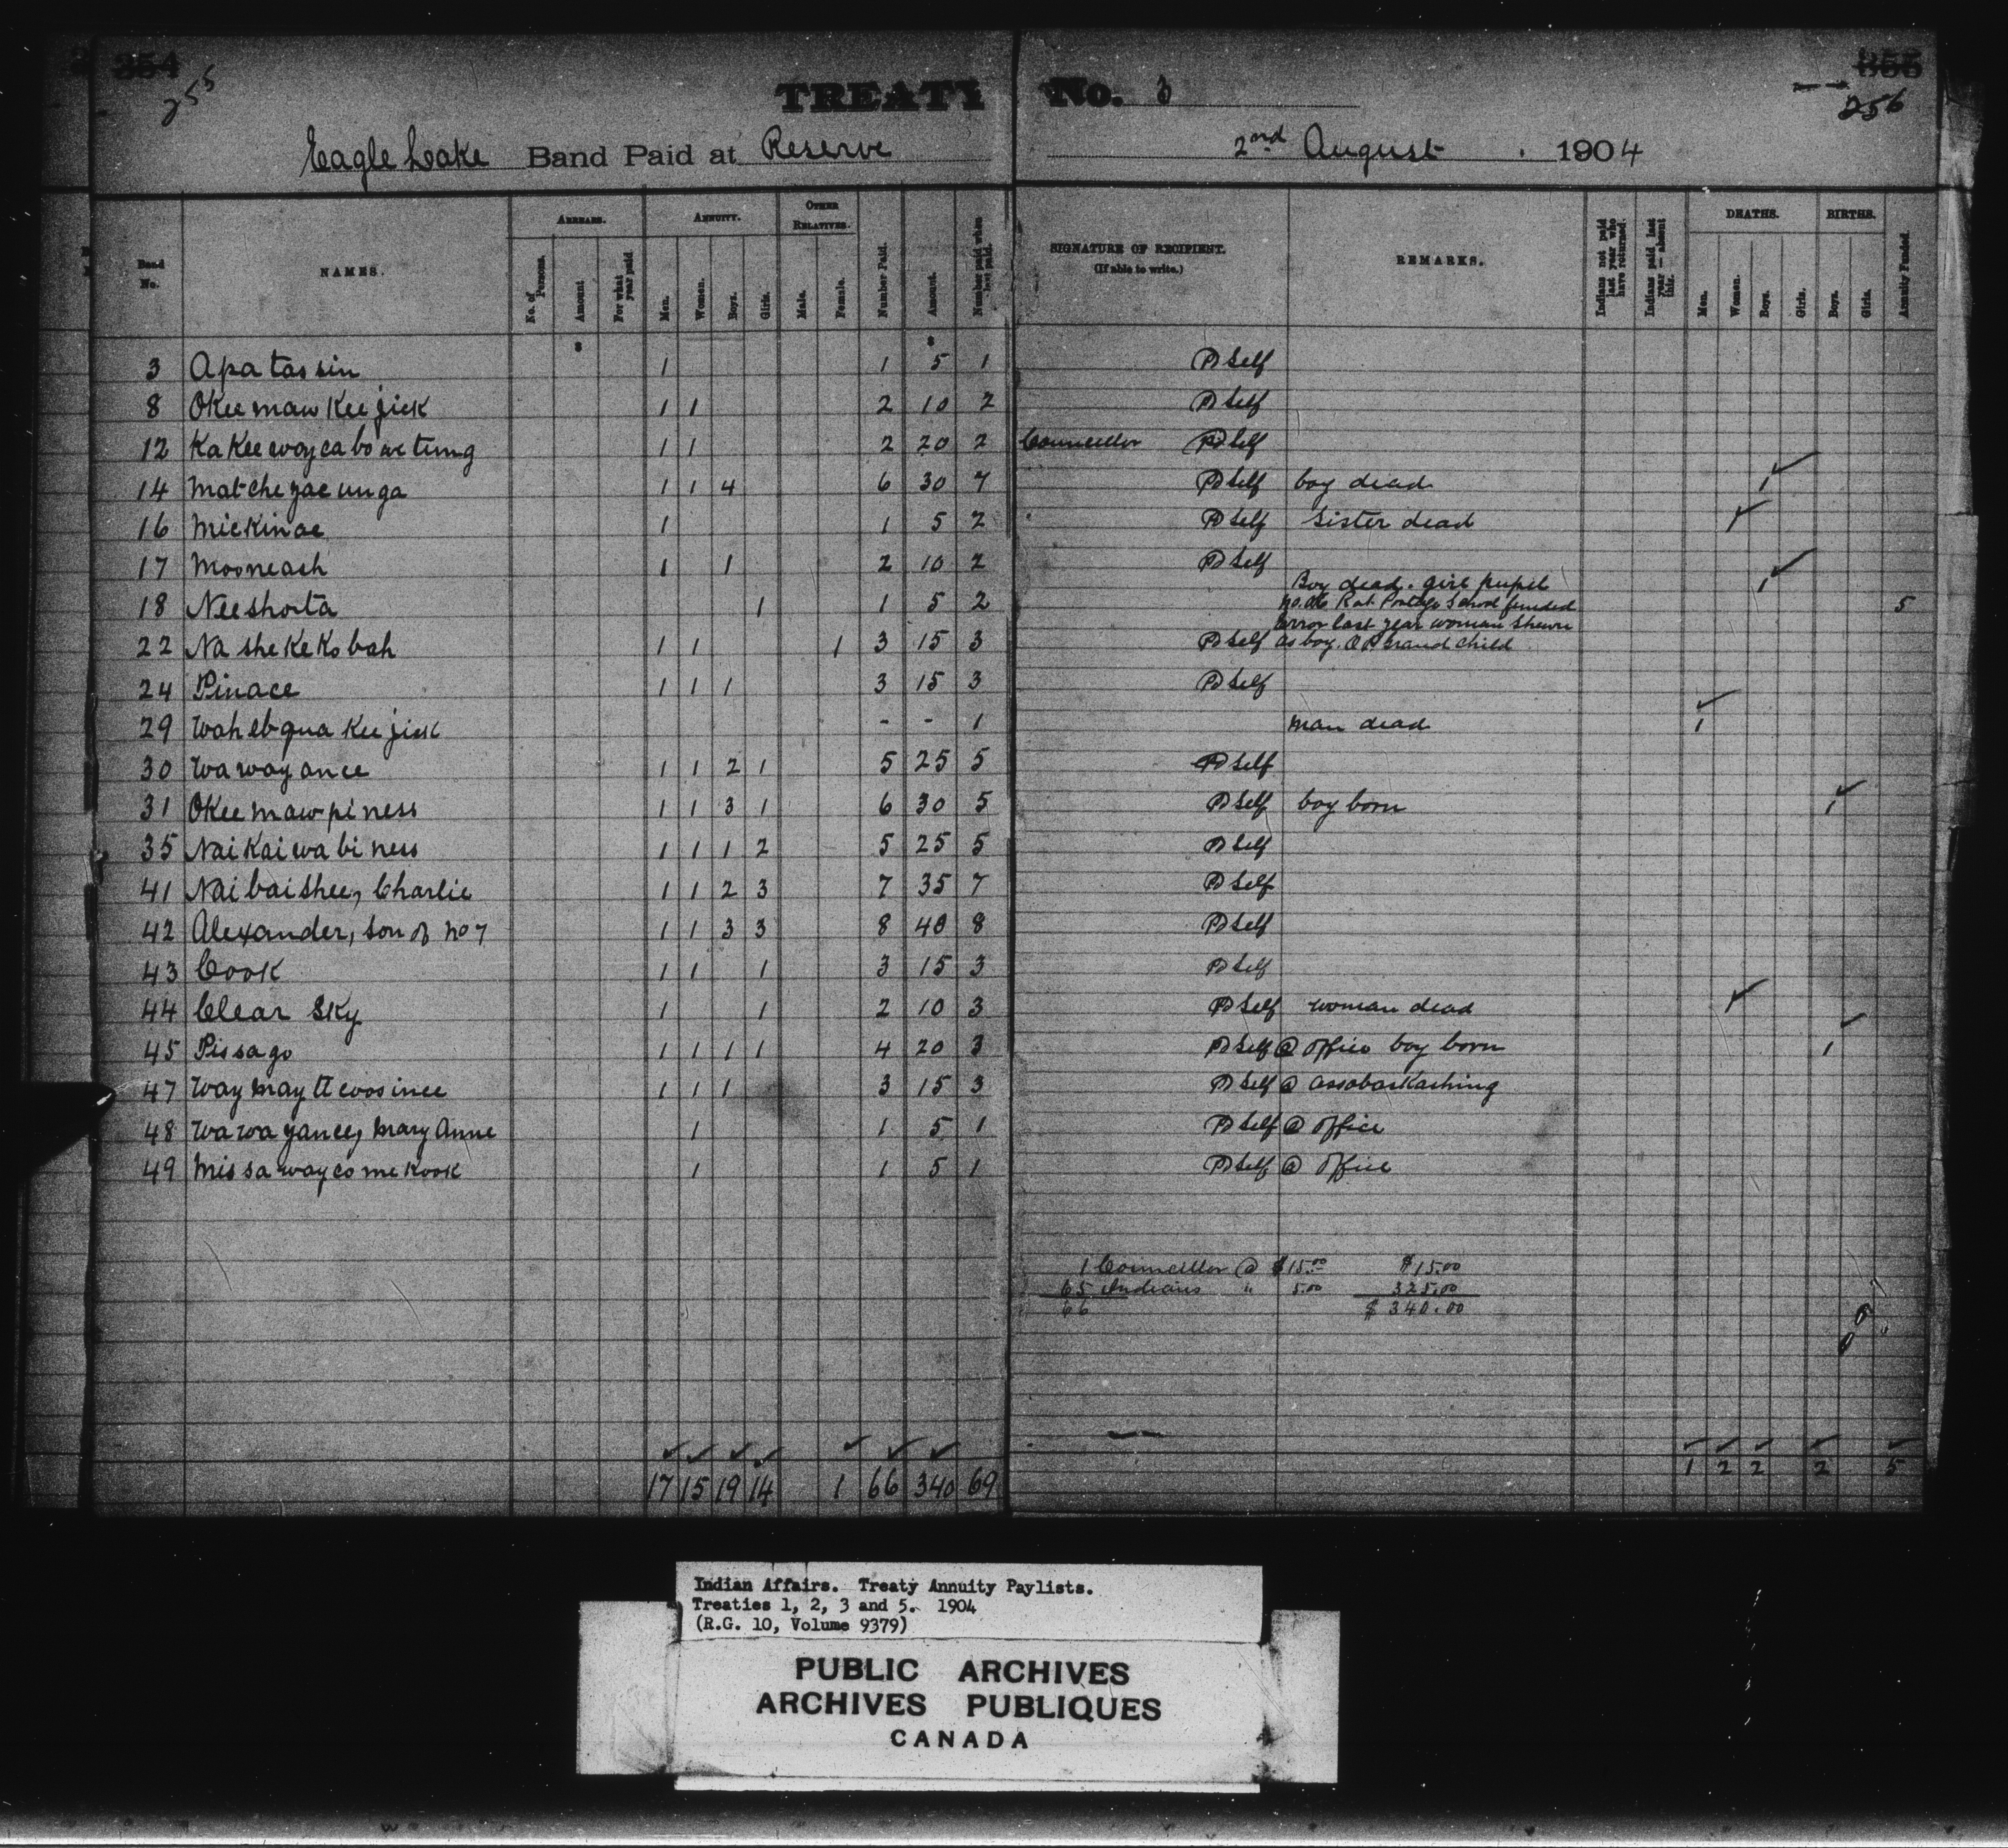 354
255
TREATY No. 3
355
256
Eagle Lake Band Paid at Reserve 2nd August 1904
Band No. NAMES. ARREARS. ANNUITY. OTHER RELATIVES. Number Paid. Amount. Number paid when last paid. SIGNATURE OF RECIPIENT. (If able to write.) REMARKS. Indians not paid last year who have returned. Indians paid last year — absent this. DEATHS. BIRTHS. Annuity Funded.
No. of Persons. Amount For what year paid Men. Women. Boys. Girls. Male. Female. Men. Women. Boys. Girls. Boys. Girls.
$ $
3 Apatassin 1 1 5 1 PD Self
8 Okeemaw Keejick 1 1 2 10 2 PD Self
12 Kakeewaycabowetung 1 1 2 20 2 Councillor PD Self
14 Matcheyaeunga 1 1 4 6 30 7 PD Self boy dead 1
16 Mickinac 1 1 5 2 PD Self Sister dead 1
17 Mooneash 1 1 2 10 2 PD Self
18 Neeshota 1 1 5 2 Boy dead. girl pupil no. 26 Rat Portage School funded 1 5
22 Na she Ke Ko bah 1 1 1 3 15 3 PD Self error last year woman shewn as boy. OR Grand Child
24 Pinace 1 1 1 3 15 3 PD Self
29 Wahebqua Keejick - - 1 man dead 1
30 Wawayance 1 1 2 1 5 25 5 PD Self
31 Okeemawpiness 1 1 3 1 6 30 5 PD Self boy born 1
35 Naikaiwabiness 1 1 1 2 5 25 5 PD Self
41 Naibaishee, Charlie 1 1 2 3 7 35 7 PD Self
42 Alexander, son of No 7 1 1 3 3 8 40 8 PD Self
43 Cook 1 1 1 3 15 3 PD Self
44 Clear Sky 1 1 2 10 3 PD Self woman dead
45 Pissago 1 1 1 1 4 20 3 PD Self @ office boy born 1
47 Waymayttewosince 1 1 1 3 15 3 PD Self @ Assabaskashing
48 Wawayance, Mary Anne 1 1 5 1 PD Self @ office
49 Missawaycomekook 1 1 5 1 PD Self @ office
1 Councillor @ $15.00 $15.00
65 Indians " 5.00 325.00
66 $340.00
17 15 19 14 1 66 340 69 1 2 2 2 5
Indian Affairs. Treaty Annuity Paylists.
Treaties 1, 2, 3 and 5. 1904
(R.G. 10, Volume 9379)
PUBLIC ARCHIVES
ARCHIVES PUBLIQUES
CANADA